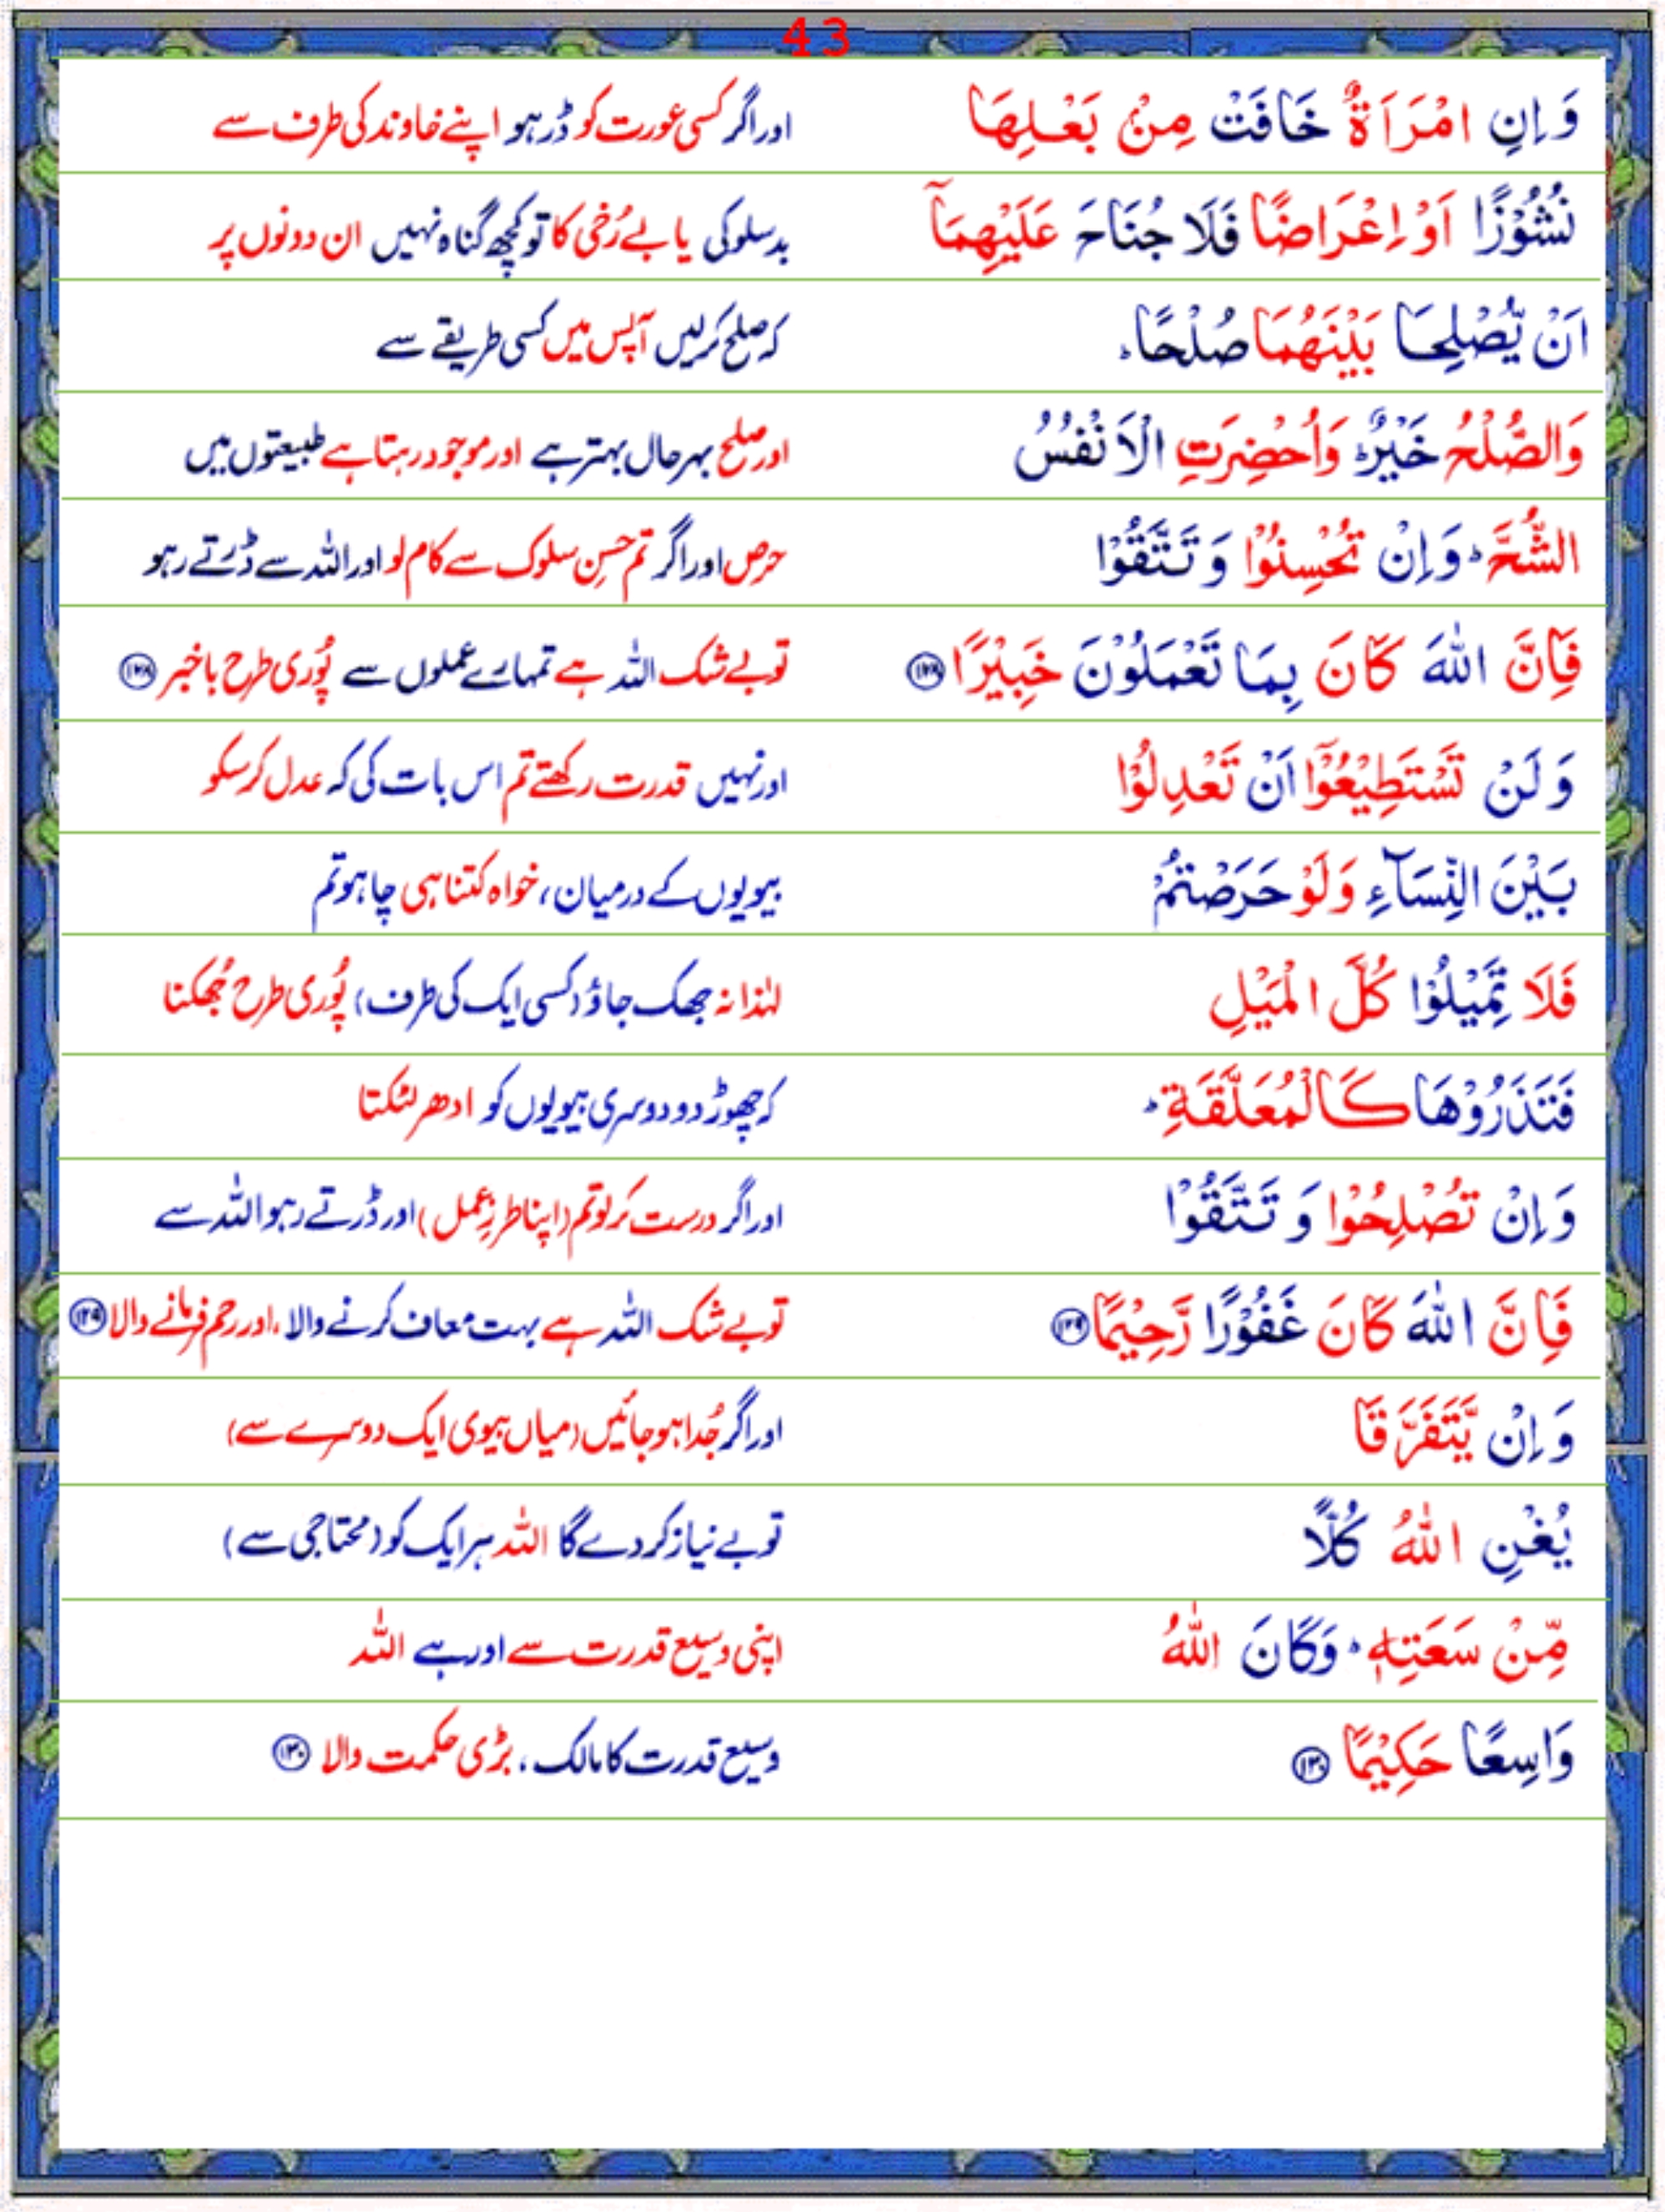 43
وَ اِنِ امْرَاَةٌ خَافَتْ مِنْۢ بَعْلِهَا اور اگر کسی عورت کو ڈر ہو اپنے خاوند کی طرف سے
نُشُوْزًا اَوْ اِعْرَاضًا فَلَا جُنَاحَ عَلَيْهِمَاۤ بدسلوکی یا بے رُخی کا تو کچھ گناہ نہیں ان دونوں پر
اَنْ يُّصْلِحَا بَيْنَهُمَا صُلْحًا ؕ کہ صلح کرلیں آپس میں کسی طریقے سے
وَالصُّلْحُ خَيْرٌ ؕ وَاُحْضِرَتِ الْاَنْفُسُ اور صلح بہرحال بہتر ہے اور موجود رہتا ہے طبیعتوں میں
الشُّحَّ ؕ وَاِنْ تُحْسِنُوْا وَ تَتَّقُوْا حرص اور اگر تم حسنِ سلوک سے کام لو اور اللہ سے ڈرتے رہو
فَاِنَّ اللّٰهَ كَانَ بِمَا تَعْمَلُوْنَ خَبِيْرًا ۝۱۲۸ تو بے شک اللہ ہے تمہارے عملوں سے پُوری طرح باخبر ۝۱۲۸
وَ لَنْ تَسْتَطِيْعُوْۤا اَنْ تَعْدِلُوْا اور نہیں قدرت رکھتے تم اس بات کی کہ عدل کرسکو
بَيْنَ النِّسَآءِ وَلَوْ حَرَصْتُمْ بیویوں کے درمیان، خواہ کتنا ہی چاہو تم
فَلَا تَمِيْلُوْا كُلَّ الْمَيْلِ لہٰذا نہ جھک جاؤ (کسی ایک کی طرف) پُوری طرح جُھکنا
فَتَذَرُوْهَا كَالْمُعَلَّقَةِ ؕ کہ چھوڑ دو دوسری بیویوں کو ادھر لٹکتا
وَ اِنْ تُصْلِحُوْا وَ تَتَّقُوْا اور اگر درست کرلو تم (اپنا طرزِ عمل) اور ڈرتے رہو اللہ سے
فَاِنَّ اللّٰهَ كَانَ غَفُوْرًا رَّحِيْمًا ۝۱۲۹ تو بے شک اللہ ہے بہت معاف کرنے والا، اور رحم فرمانے والا ۝۱۲۹
وَ اِنْ يَّتَفَرَّقَا اور اگر جُدا ہوجائیں (میاں بیوی ایک دوسرے سے)
يُغْنِ اللّٰهُ كُلًّا تو بے نیاز کردے گا اللہ ہر ایک کو (محتاجی سے)
مِّنْ سَعَتِهٖ ؕ وَكَانَ اللّٰهُ اپنی وسیع قدرت سے اور ہے اللہ
وَاسِعًا حَكِيْمًا ۝۱۳۰ وسیع قدرت کا مالک، بڑی حکمت والا ۝۱۳۰